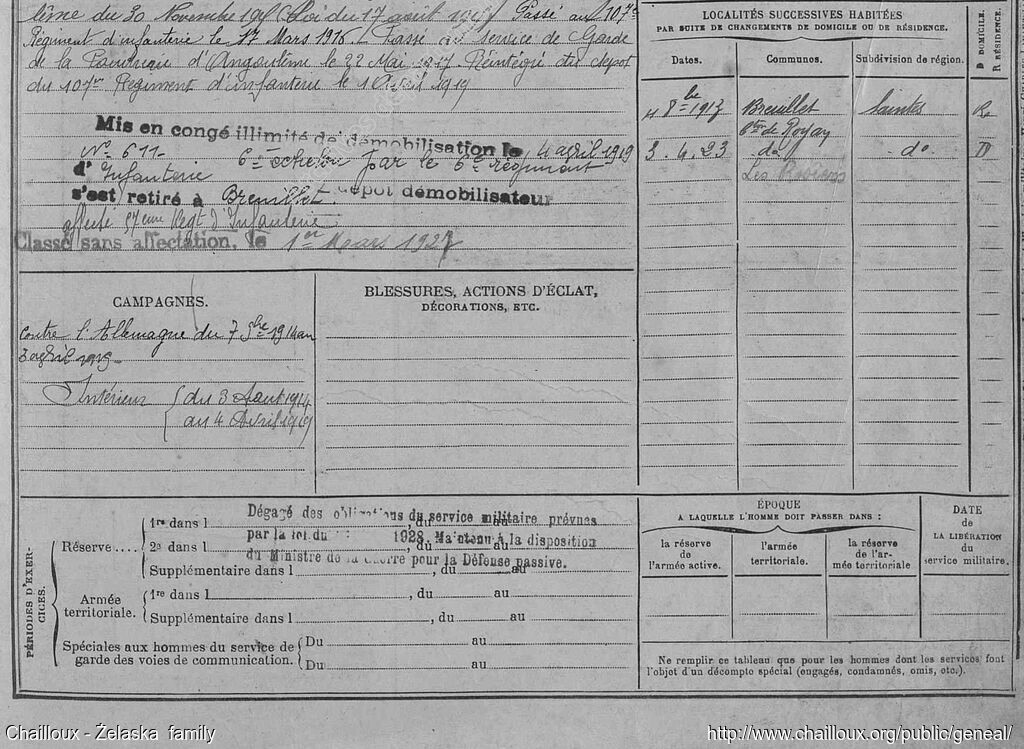 ième du 30 Novembre 191 (Loi du 17 août 1915) Passé au 107e
Régiment d'infanterie le 17 Mars 1916. Passé au service de Garde
de la Poudrerie d'Angoulême le 22 Mai 1917. Réintégré du dépot
du 107me Régiment d'infanterie le 1 Avril 1919
Mis en congé illimité de démobilisation le 4 avril 1919
No 611 6e échelon par le 6e régiment
d'Infanterie
dépôt démobilisateur
s'est retiré à Breuillet
affecté 57eme Regt d'Infanterie
Classé sans affectation, le 1er Mars 1927
CAMPAGNES.
contre l'Allemagne du 7 9bre 1914 au
3 avril 1919
Intérieur du 3 Aout 1914
au 4 Avril 1919
BLESSURES, ACTIONS D'ÉCLAT,
DÉCORATIONS, ETC.
LOCALITÉS SUCCESSIVES HABITÉES
PAR SUITE DE CHANGEMENTS DE DOMICILE OU DE RÉSIDENCE.
D DOMICILE.
R RÉSIDENCE.
Dates. Communes. Subdivision de région.
8bre 1913 Breuillet Saintes R
de Royan
3.4.23 do do D
Les
PÉRIODES D'EXERCICES.
Réserve....
1re dans l , du au
2e dans l , du au
Supplémentaire dans l , du au
Dégagé des obligations du service militaire prévues
par la loi du 1928. Maintenu à la disposition
du Ministre de la Guerre pour la Défense passive.
Armée
territoriale.
1re dans l , du au
Supplémentaire dans l , du au
Spéciales aux hommes du service de
garde des voies de communication.
Du au
Du au
ÉPOQUE
A LAQUELLE L'HOMME DOIT PASSER DANS :
la réserve
de
l'armée active.
l'armée
territoriale.
la réserve
de l'ar-
mée territoriale
DATE
de
LA LIBÉRATION
du
service militaire.
Ne remplir ce tableau que pour les hommes dont les services font
l'objet d'un décompte spécial (engagés, condamnés, omis, etc.).
Chailloux - Żelaska family
http://www.chailloux.org/public/geneal/